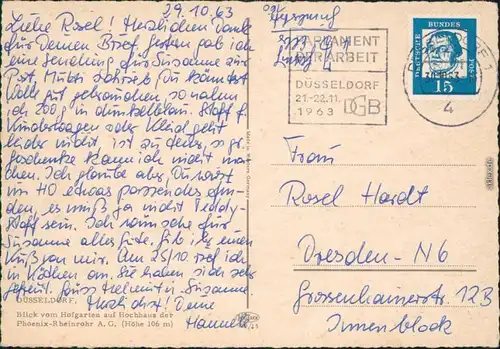 29.10.63
Liebe Rosel! Herzlichen Dank
für Deinen Brief, gestern gab ich
eine Sendung für Susanne zur
Post. Mutti schrieb Du kannst
Wolle gut gebrauchen so nahm
ich 200 g in dunkelblau. Stoff f.
Kinderwagen oder Kleid geht
leider nicht, ist zu teuer, so gr.
Geschenke kann ich nicht ma-
chen. Ich glaube aber, Du wirst
im HO etwas passendes fin-
den, es muß ja nicht Teddy-
stoff sein. Ich wünsche für
Susanne alles Gute. Gib ihr einen
Kuß von mir. Am 25/10 rief ich
in an. Sie haben sich sehr
gefreut. Gruss Helmut u. Susanne
Herzlichst! Deine
Hannele
DÜSSELDORF,
Blick vom Hofgarten auf Hochhaus der
Phoenix-Rheinrohr A.G. (Höhe 106 m)
PARLAMENT
DER ARBEIT
DÜSSELDORF
21.-22.11.
1963 DGB
DEUTSCHE BUNDESPOST
15
4
Frau
Rosel Hardt
Dresden-N6
Grossenhainerstr. 12B
Innenblock